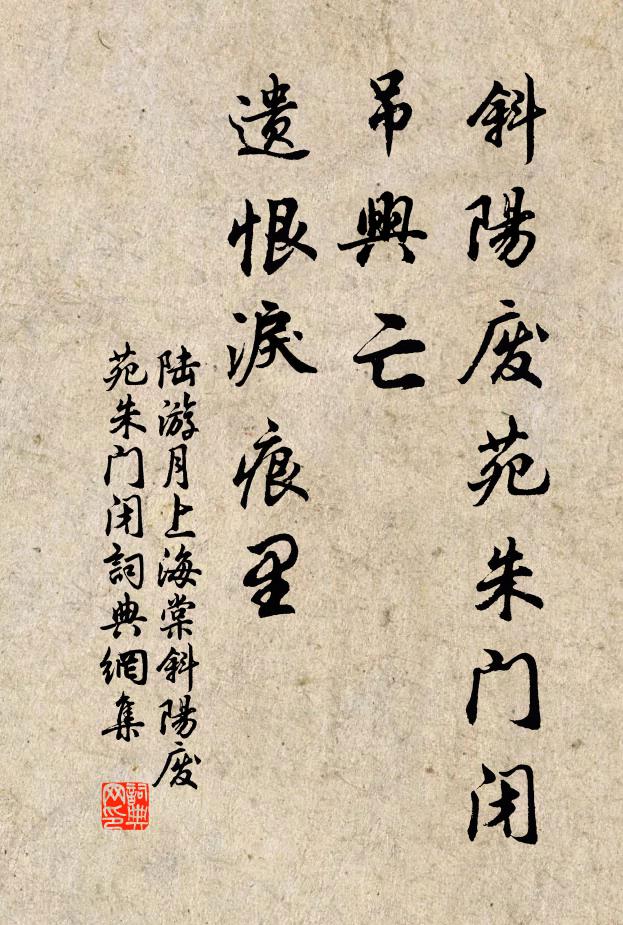 斜陽废苑朱门闭
吊興亡
遗恨淚痕里
陆游月上海棠斜陽废
苑朱门闭詞典網集
詞典
网印